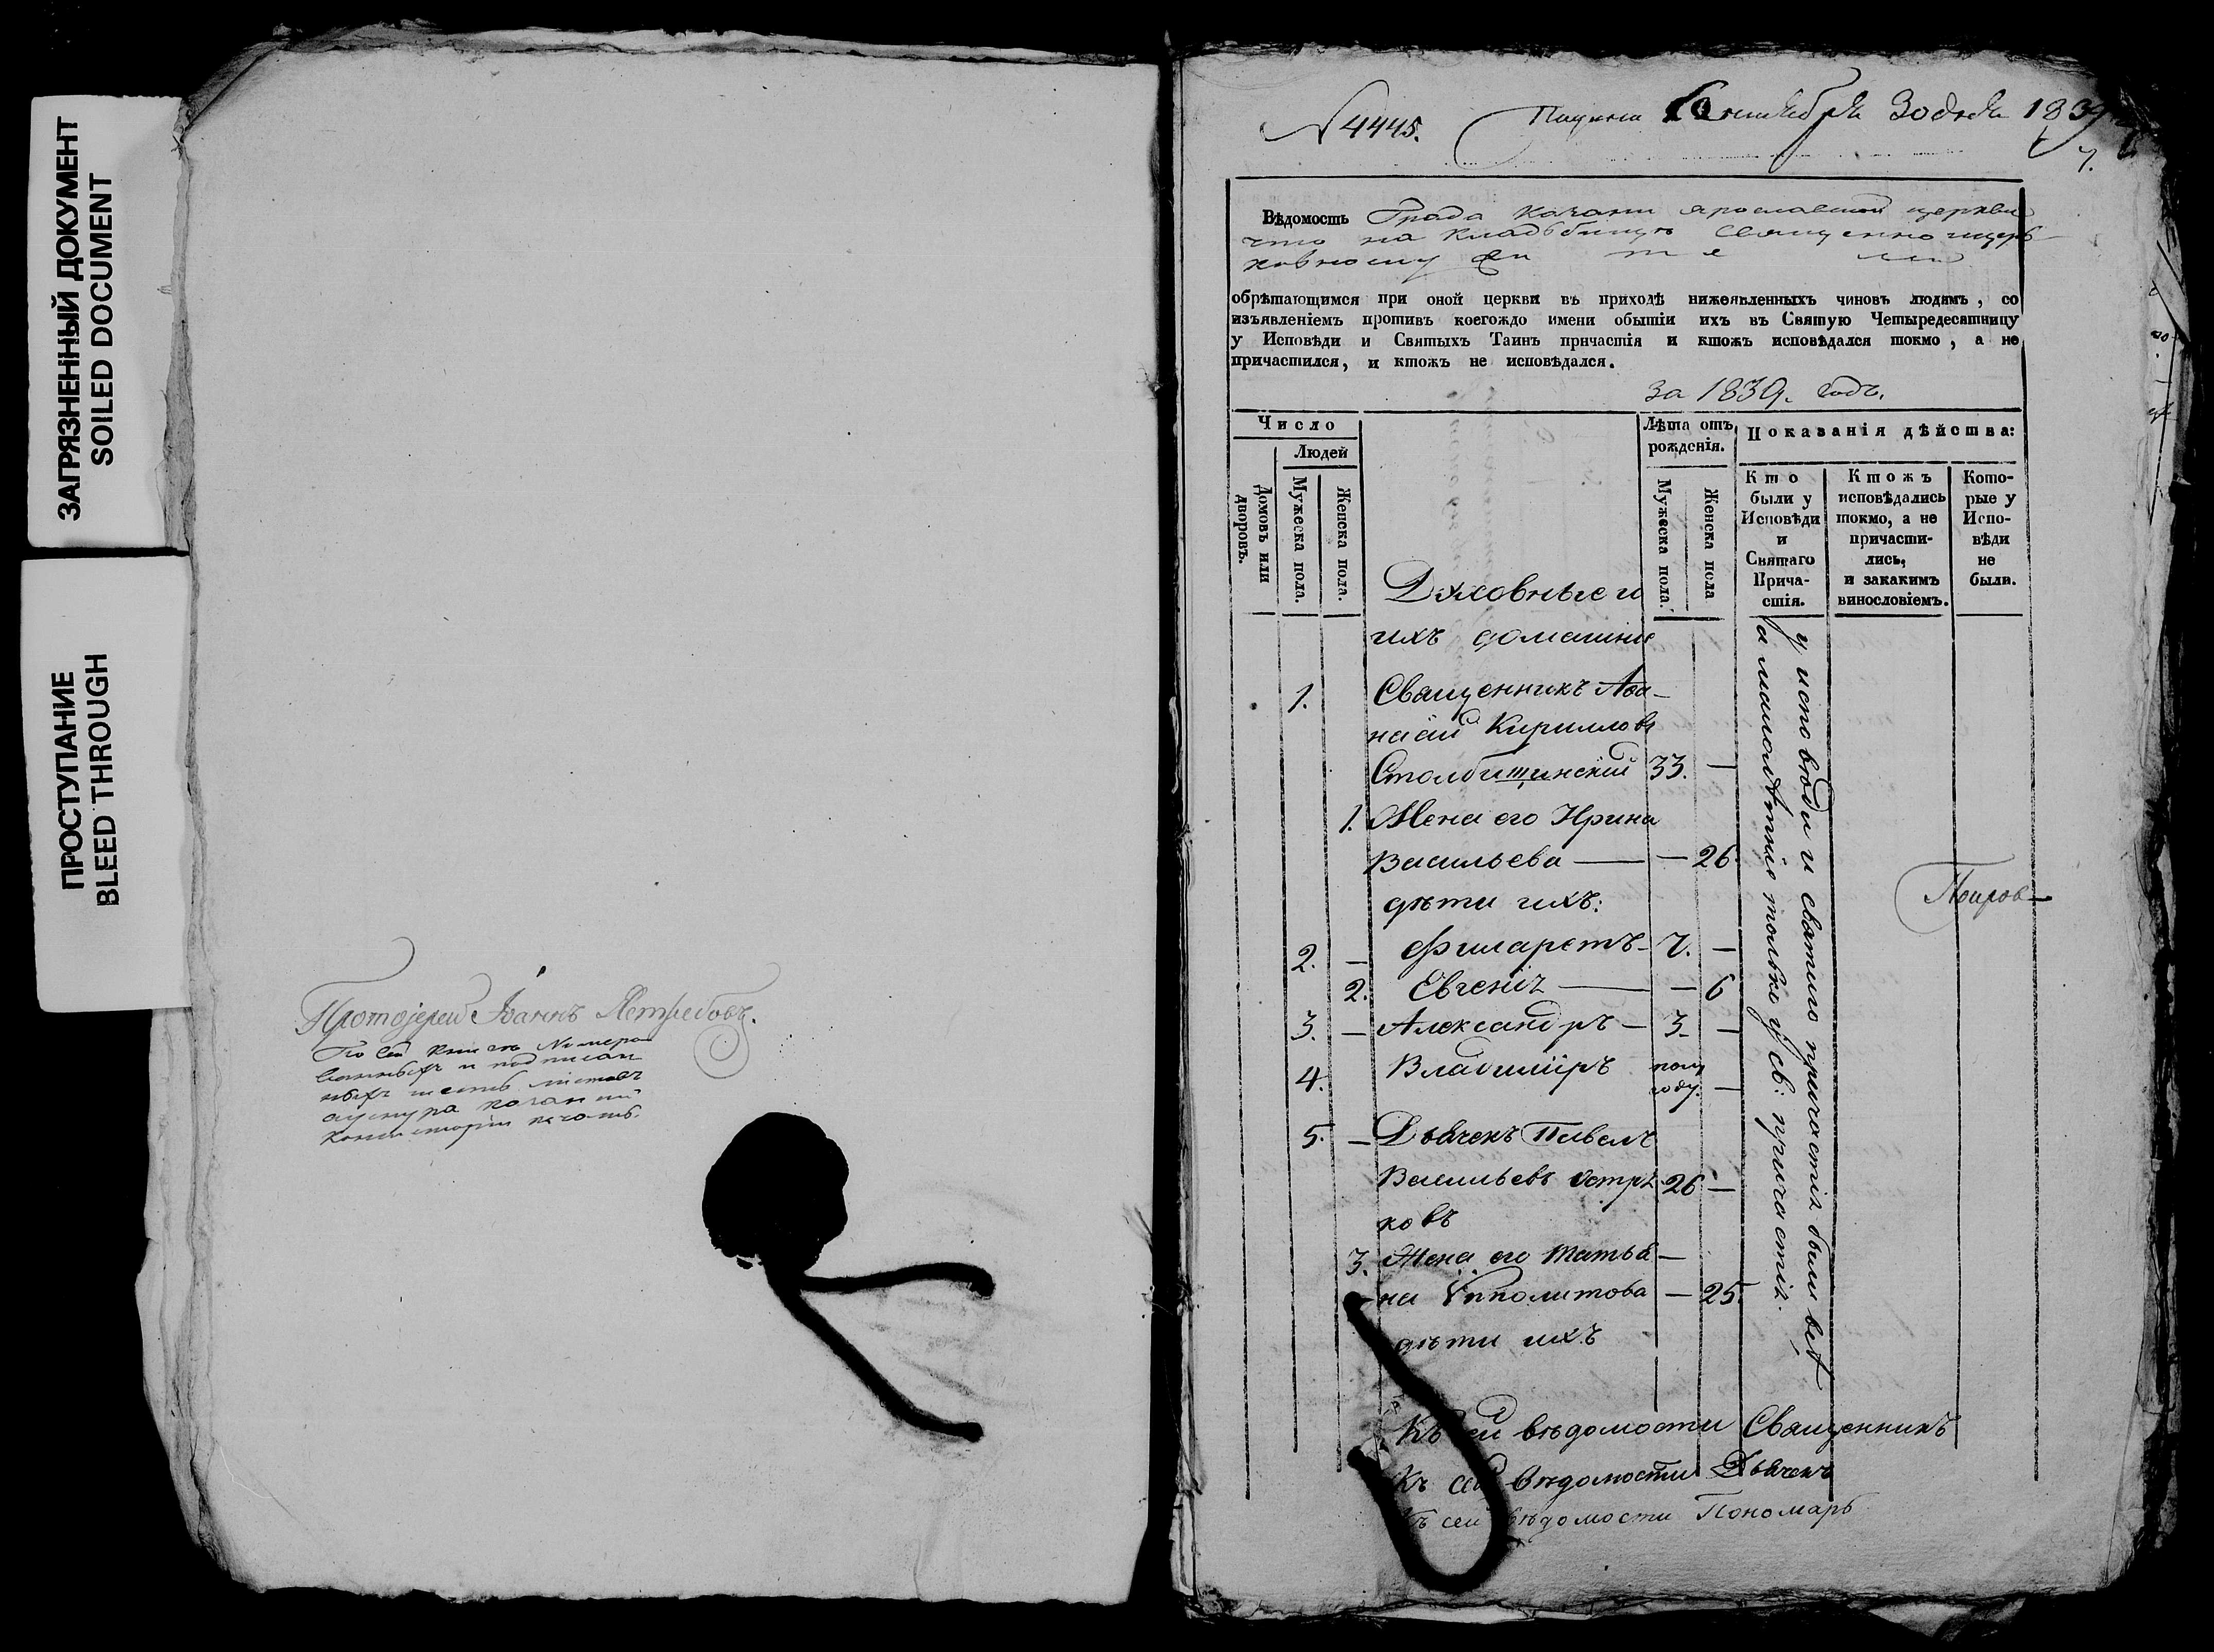 ЗАГРЯЗНЕННЫЙ ДОКУМЕНТ
SOILED DOCUMENT
ПРОСТУПАНИЕ
BLEED THROUGH
Протоіерей Іоаннъ Ястребовъ.
По сей книгѣ Нумеро
ванныхъ и подписан
ныхъ шесть листовъ
печать.
N 4445.
Сентября 30 дня 1839
7.
Вѣдомость Града Казани Ярославской церкви
что на Кладбищѣ Священноцерк
овному
обрѣтающимся при оной церкви въ приходѣ нижеявленныхъ чиновъ людямъ, со
изъявленіемъ противъ коегождо имени обытіи ихъ въ Святую Четыредесятницу
у Исповѣди и Святыхъ Таинъ причастія и ктожъ исповѣдался токмо, а не
причастился, и ктожъ не исповѣдался.
за 1839. годъ.
Число
Людей
Домовъ или дворовъ.
Мужеска пола.
Женска пола.
Лѣта отъ рожденія.
Мужеска пола.
Женска пола
Показанія дѣйства:
Кто были у Исповѣди и Святаго Причастія.
Ктожъ исповѣдались токмо, а не причастились, и закакимъ винословіемъ.
Которые у Исповѣди не были.
Духовные и
ихъ домашніе
1. Священникъ Аѳа-
насій Кирилловъ
Столбищинскій 33. —
1. Жена его Ирина
Васильева — — 26.
дѣти ихъ:
2. — Филаретъ — 7. —
2. Евгенія — — 6
3. — Александръ — 3. —
4. Владиміръ пол году. —
5. — Дьячекъ Павелъ
Васильевъ Остря 26 —
ковъ
3. Жена его Татья —
на Ипполитова — 25.
дѣти ихъ
у исповѣди и святаго причастія были всѣ
а малолѣтніе только у св: причастія.
Къ сей вѣдомости Священникъ
Къ сей вѣдомости Дьячекъ
Къ сей вѣдомости Пономарь